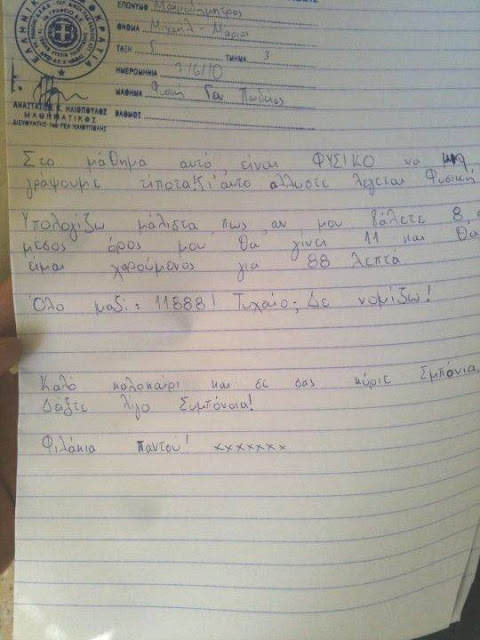 ΕΛΛΗΝΙΚΗ ΔΗΜΟΚΡΑΤΙΑ
ΕΠΩΝΥΜΟ Μαυροδημητρος
ΟΝΟΜΑ Μιχαηλ - Μαριος
ΤΑΞΗ Γ ΤΜΗΜΑ 3
ΗΜΕΡΟΜΗΝΙΑ 1/6/10
ΜΑΘΗΜΑ Φυσικη Γεν Παιδειας
ΒΑΘΜΟΣ
ΑΝΑΣΤΑΣΙΟΣ Κ. ΗΛΙΟΠΟΥΛΟΣ
ΜΑΘΗΜΑΤΙΚΟΣ
ΔΙΕΥΘΥΝΤΗΣ ΓΕΛ ΗΛΙΟΥΠΟΛΗΣ
Στο μάθημα αυτό, είναι ΦΥΣΙΚΟ να μη
γράψουμε τίποτα! Γι'αυτο αλλωστε λέγεται Φυσική
Υπολογίζω μάλιστα, πως, αν μου βάλετε 8, ο
μέσος όρος μου θα γίνει 11 και θα
είμαι χαρούμενος για 88 λεπτά
Όλο μαζί: 11888! Τυχαίο; Δε νομίζω!
Καλό καλοκαίρι και σε σας κύριε Συμπόνια.
Δείξτε λίγο Συμπόνοια!
Φιλάκια παντού! xxxxxxx